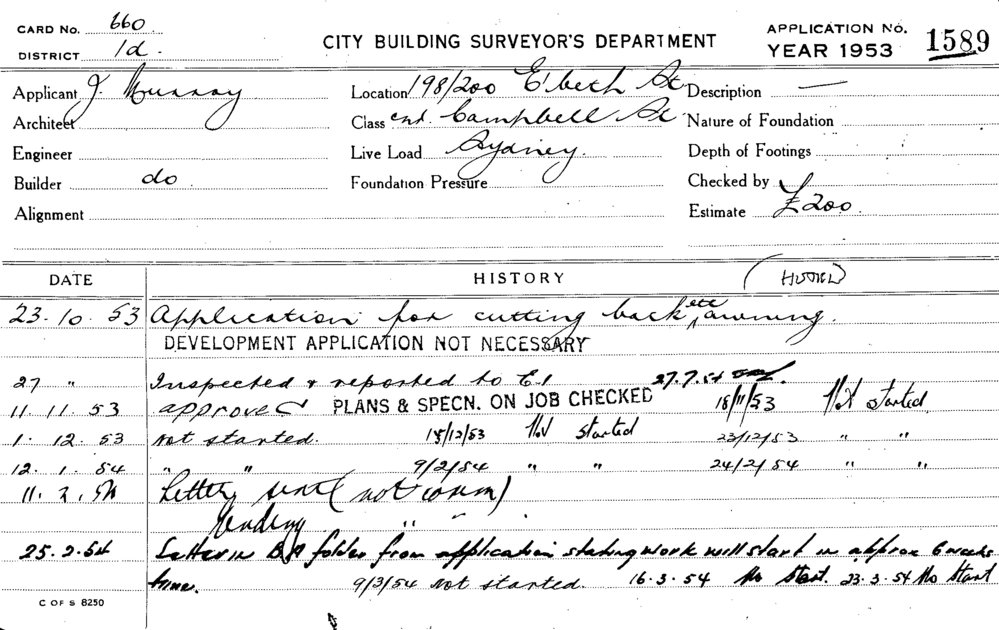 CARD No. 660
DISTRICT 1d.
CITY BUILDING SURVEYOR'S DEPARTMENT
APPLICATION No. 1589
YEAR 1953
Applicant J. Murray
Location 198/200 E'beth St
Description —
Architect
Class cnr. Campbell St
Nature of Foundation
Engineer
Live Load Sydney.
Depth of Footings
Builder do
Foundation Pressure
Checked by
Alignment
Estimate £200.
DATE HISTORY (HOTEL)
23.10.53 Application for cutting back etc awning.
DEVELOPMENT APPLICATION NOT NECESSARY
27 " Inspected & reported to E.1 27.7.54
11.11.53 approved PLANS & SPECN. ON JOB CHECKED 18/11/53 Not started.
1.12.53 not started. 15/12/53 Not started 23/12/53 " "
12.1.54 " " 9/2/54 " " 24/2/54 " "
11.2.54 Letter sent (not comm)
Pending " "
25.2.54 Letter in B A folder from application stating work will start in approx 6 weeks
time. 9/3/54 not started. 16.3.54 No Start. 23.3.54 No Start
C OF S 8250